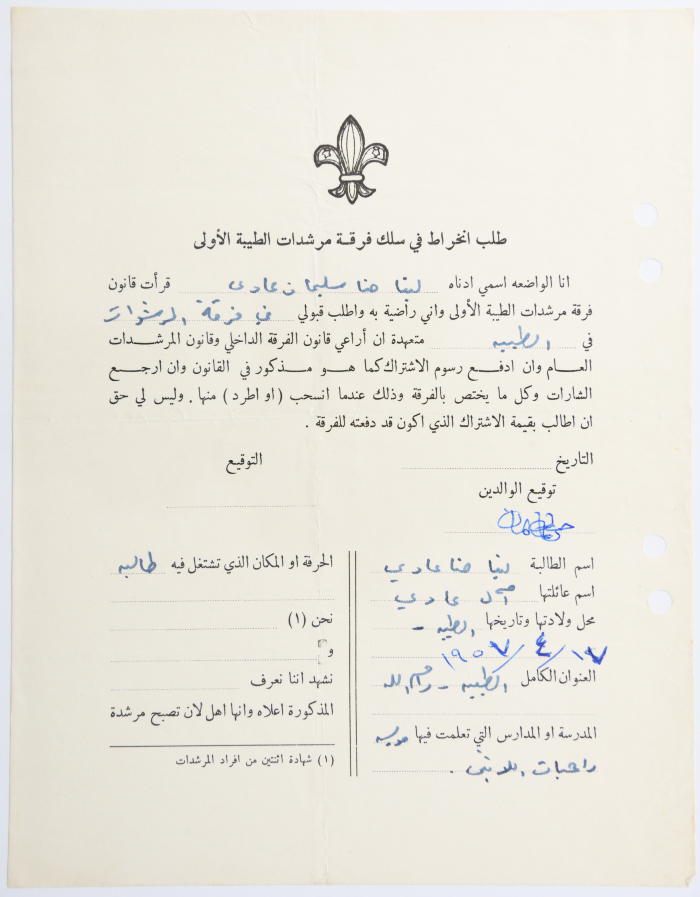 طلب انخراط في سلك فرقة مرشدات الطيبة الأولى
انا الواضعه اسمي ادناه لينا حنا سليمان عادي قرأت قانون
فرقة مرشدات الطيبة الأولى واني راضية به واطلب قبولي في فرقة المرشدات
في الطيبه متعهدة ان أراعي قانون الفرقة الداخلي وقانون المرشدات
العام وان ادفع رسوم الاشتراك كما هو مذكور في القانون وان ارجع
الشارات وكل ما يختص بالفرقة وذلك عندما انسحب (او اطرد) منها. وليس لي حق
ان اطالب بقيمة الاشتراك الذي اكون قد دفعته للفرقة .
التاريخ
التوقيع
توقيع الوالدين
اسم الطالبة لينا حنا عادي
اسم عائلتها عادي
محل ولادتها وتاريخها الطيبه -
١٩٥٧/٤/١٧
العنوان الكامل الطيبه - رام الله
المدرسة او المدارس التي تعلمت فيها مدرسه
راهبات اللاتين .
الحرفة او المكان الذي تشتغل فيه طالبه
نحن (١)
و
نشهد اننا نعرف
المذكورة اعلاه وانها اهل لان تصبح مرشدة
(١) شهادة اثنتين من افراد المرشدات